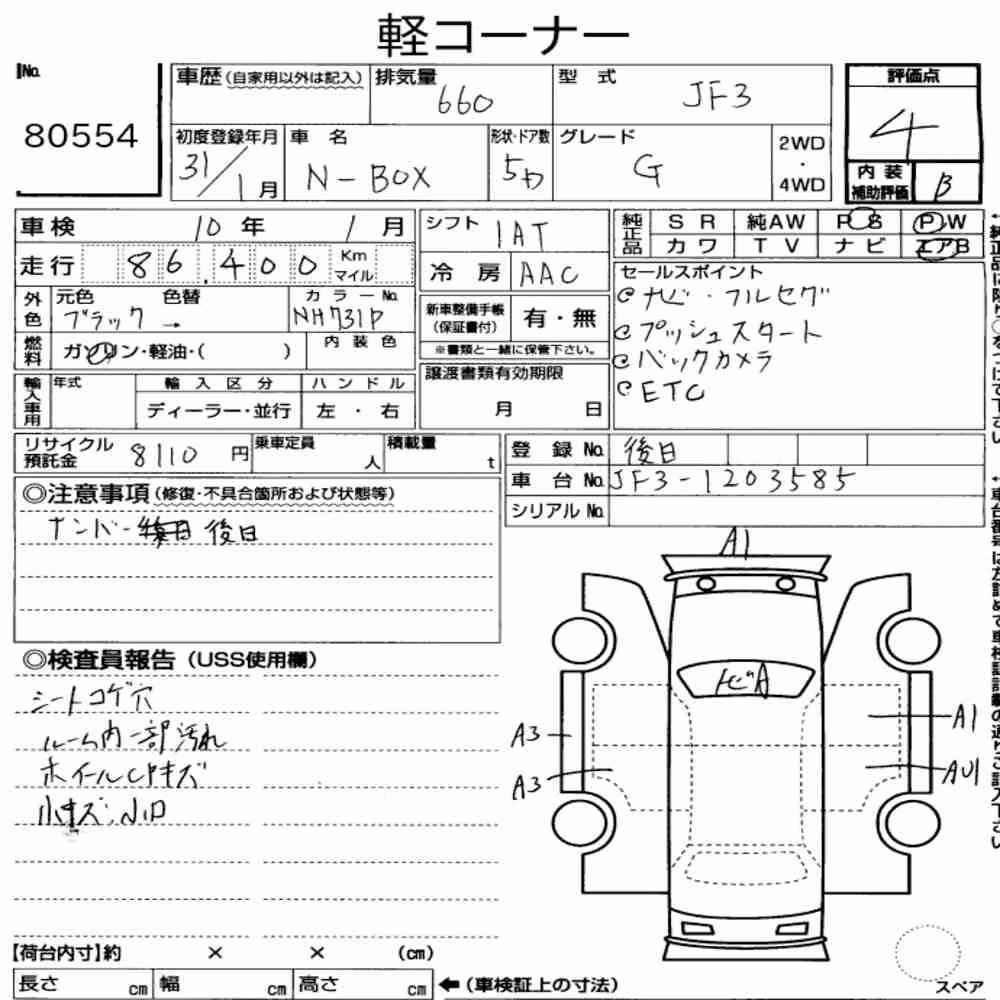 軽コーナー
No.
80554
車歴(自家用以外は記入) 排気量 660 型式 JF3
評価点 4
初度登録年月 31/1月 車名 N-BOX 形状・ドア数 5D グレード G 2WD・4WD
内装補助評価 B
車検 10年 1月
走行 86,400 Km マイル
シフト IAT
冷房 AAC
純正品 SR 純AW PS PW
カワ TV ナビ エアB
外色 元色 ブラック → 色替 カラーNo. NH731P
燃料 ガソリン・軽油・( ) 内装色
新車整備手帳(保証書付) 有・無
※書類と一緒に保管下さい。
セールスポイント
ナビ・フルセグ
プッシュスタート
バックカメラ
ETC
輸入車用 年式 輸入区分 ハンドル
ディーラー・並行 左・右
譲渡書類有効期限
月 日
リサイクル預託金 8110円 乗車定員 人 積載量 t
登録No. 後日
車台No. JF3-1203585
シリアルNo.
◎注意事項(修復・不具合箇所および状態等)
ナンバー 後日
◎検査員報告(USS使用欄)
シートコゲ穴
ルーム内一部汚れ
ホイールCPキズ
小キズ、小凹
A1
トビA
A3
A3
A1
AU1
【荷台内寸】約 × × (cm)
長さ cm 幅 cm 高さ cm
←(車検証上の寸法)
スペア